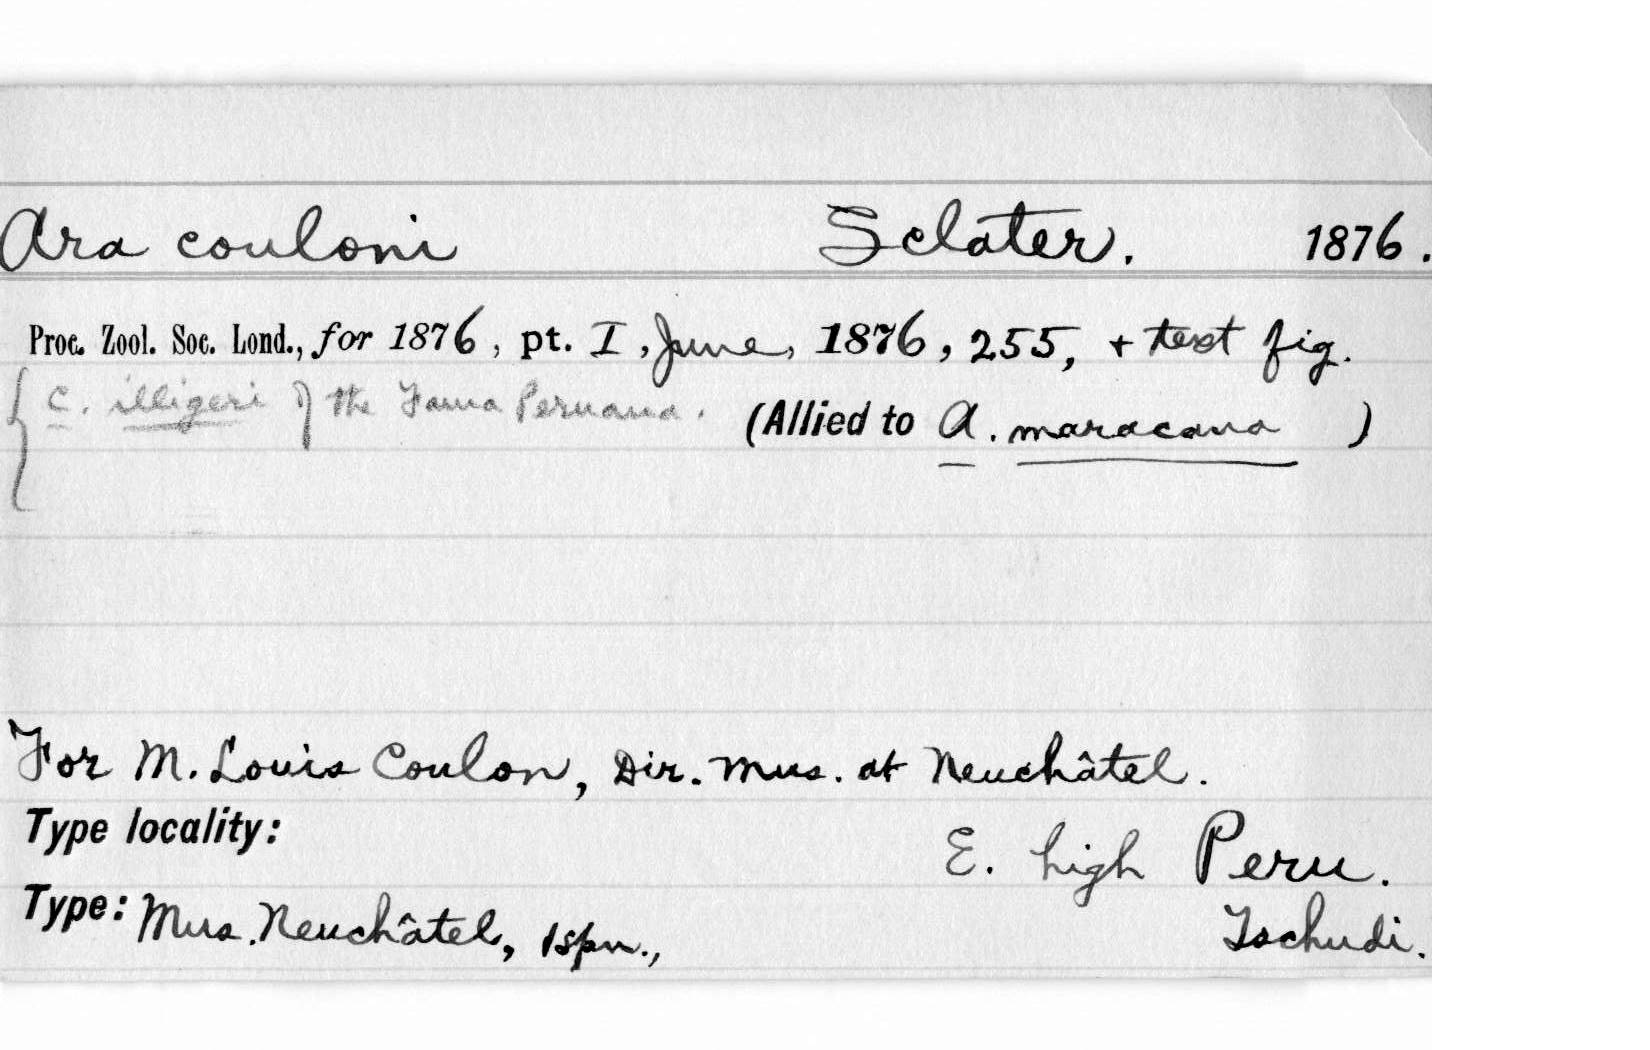 Ara couloni Sclater. 1876.
Proc. Zool. Soc. Lond., for 1876, pt. I, June, 1876, 255, + text fig.
{ C. illigeri of the Fauna Peruana. (Allied to A. maracana )
For M. Louis Coulon, Dir. Mus. at Neuchâtel.
Type locality: E. high Peru.
Type: Mus. Neuchâtel, 1 spn., Tschudi.